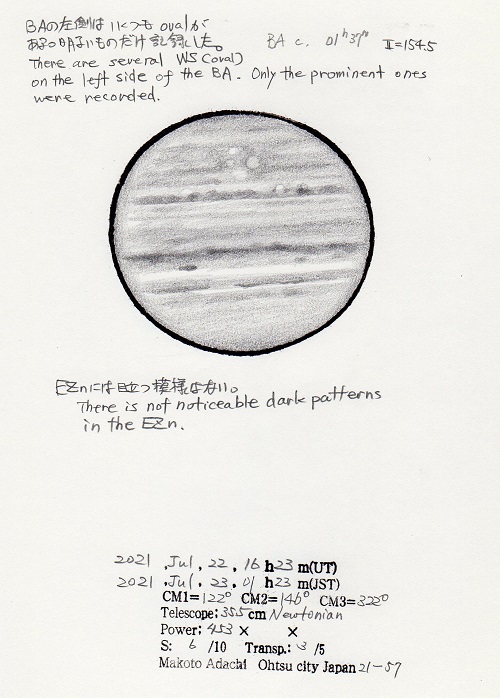 BAの左側はいくつもovalが
ある。明るいものだけ記録した。
There are several WS (oval)
on the left side of the BA. Only the prominent ones
were recorded.
BA c. 01h37m II=154.5
EZnには目立つ模様はない。
There is not noticeable dark patterns
in the EZn.
2021 , Jul , 22 , 16 h 23 m(UT)
2021 , Jul , 23 , 01 h 23 m(JST)
CM1=122° CM2=146° CM3=322°
Telescope: 355 cm Newtonian
Power: 453 × ×
S: 6 /10 Transp.: 3 /5
Makoto Adachi Ohtsu city Japan 21-57